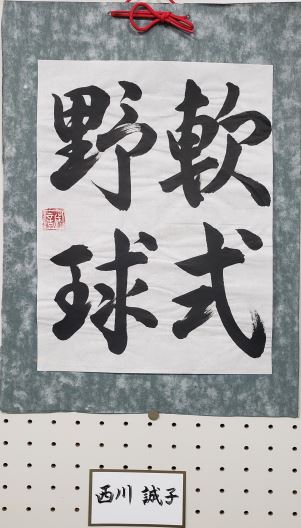 軟式
野球
西川 誠子